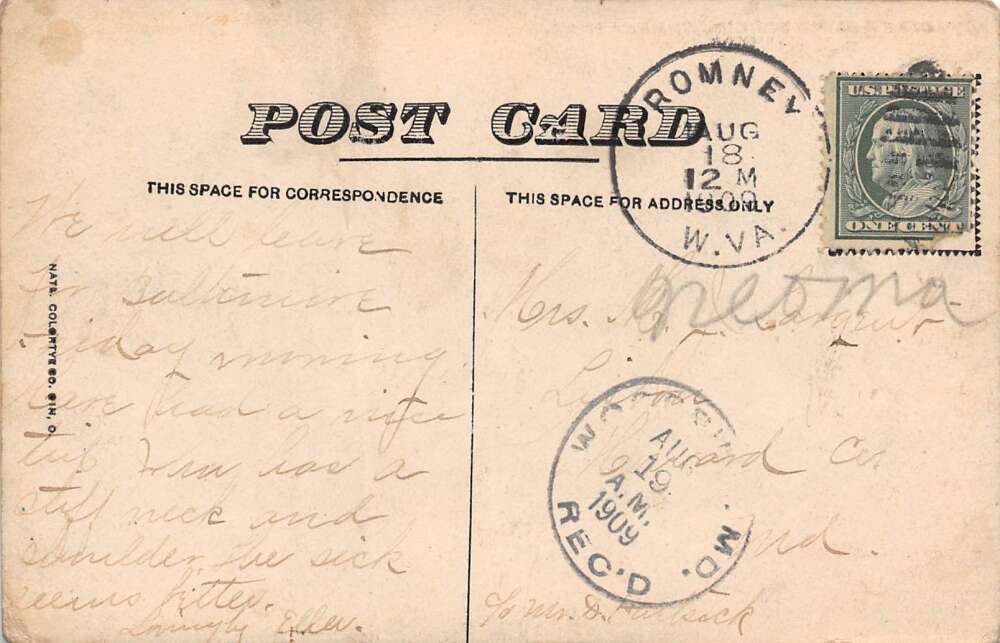 POST CARD
THIS SPACE FOR CORRESPONDENCE
THIS SPACE FOR ADDRESS ONLY
ROMNEY
AUG
18
12 M
1909
W. VA.
U.S. POSTAGE
ONE CENT
NATL. COLORTYPE CO. CIN, O.
We will leave
for Baltimore
Friday morning
Have had a nice
trip has a
stiff neck and
shoulder the sick
seems better.
Lovingly Ella.
Mrs.
Howard Co.
Md.
c/o Mr. D.
AUG
19
A.M.
1909
MD.
REC'D